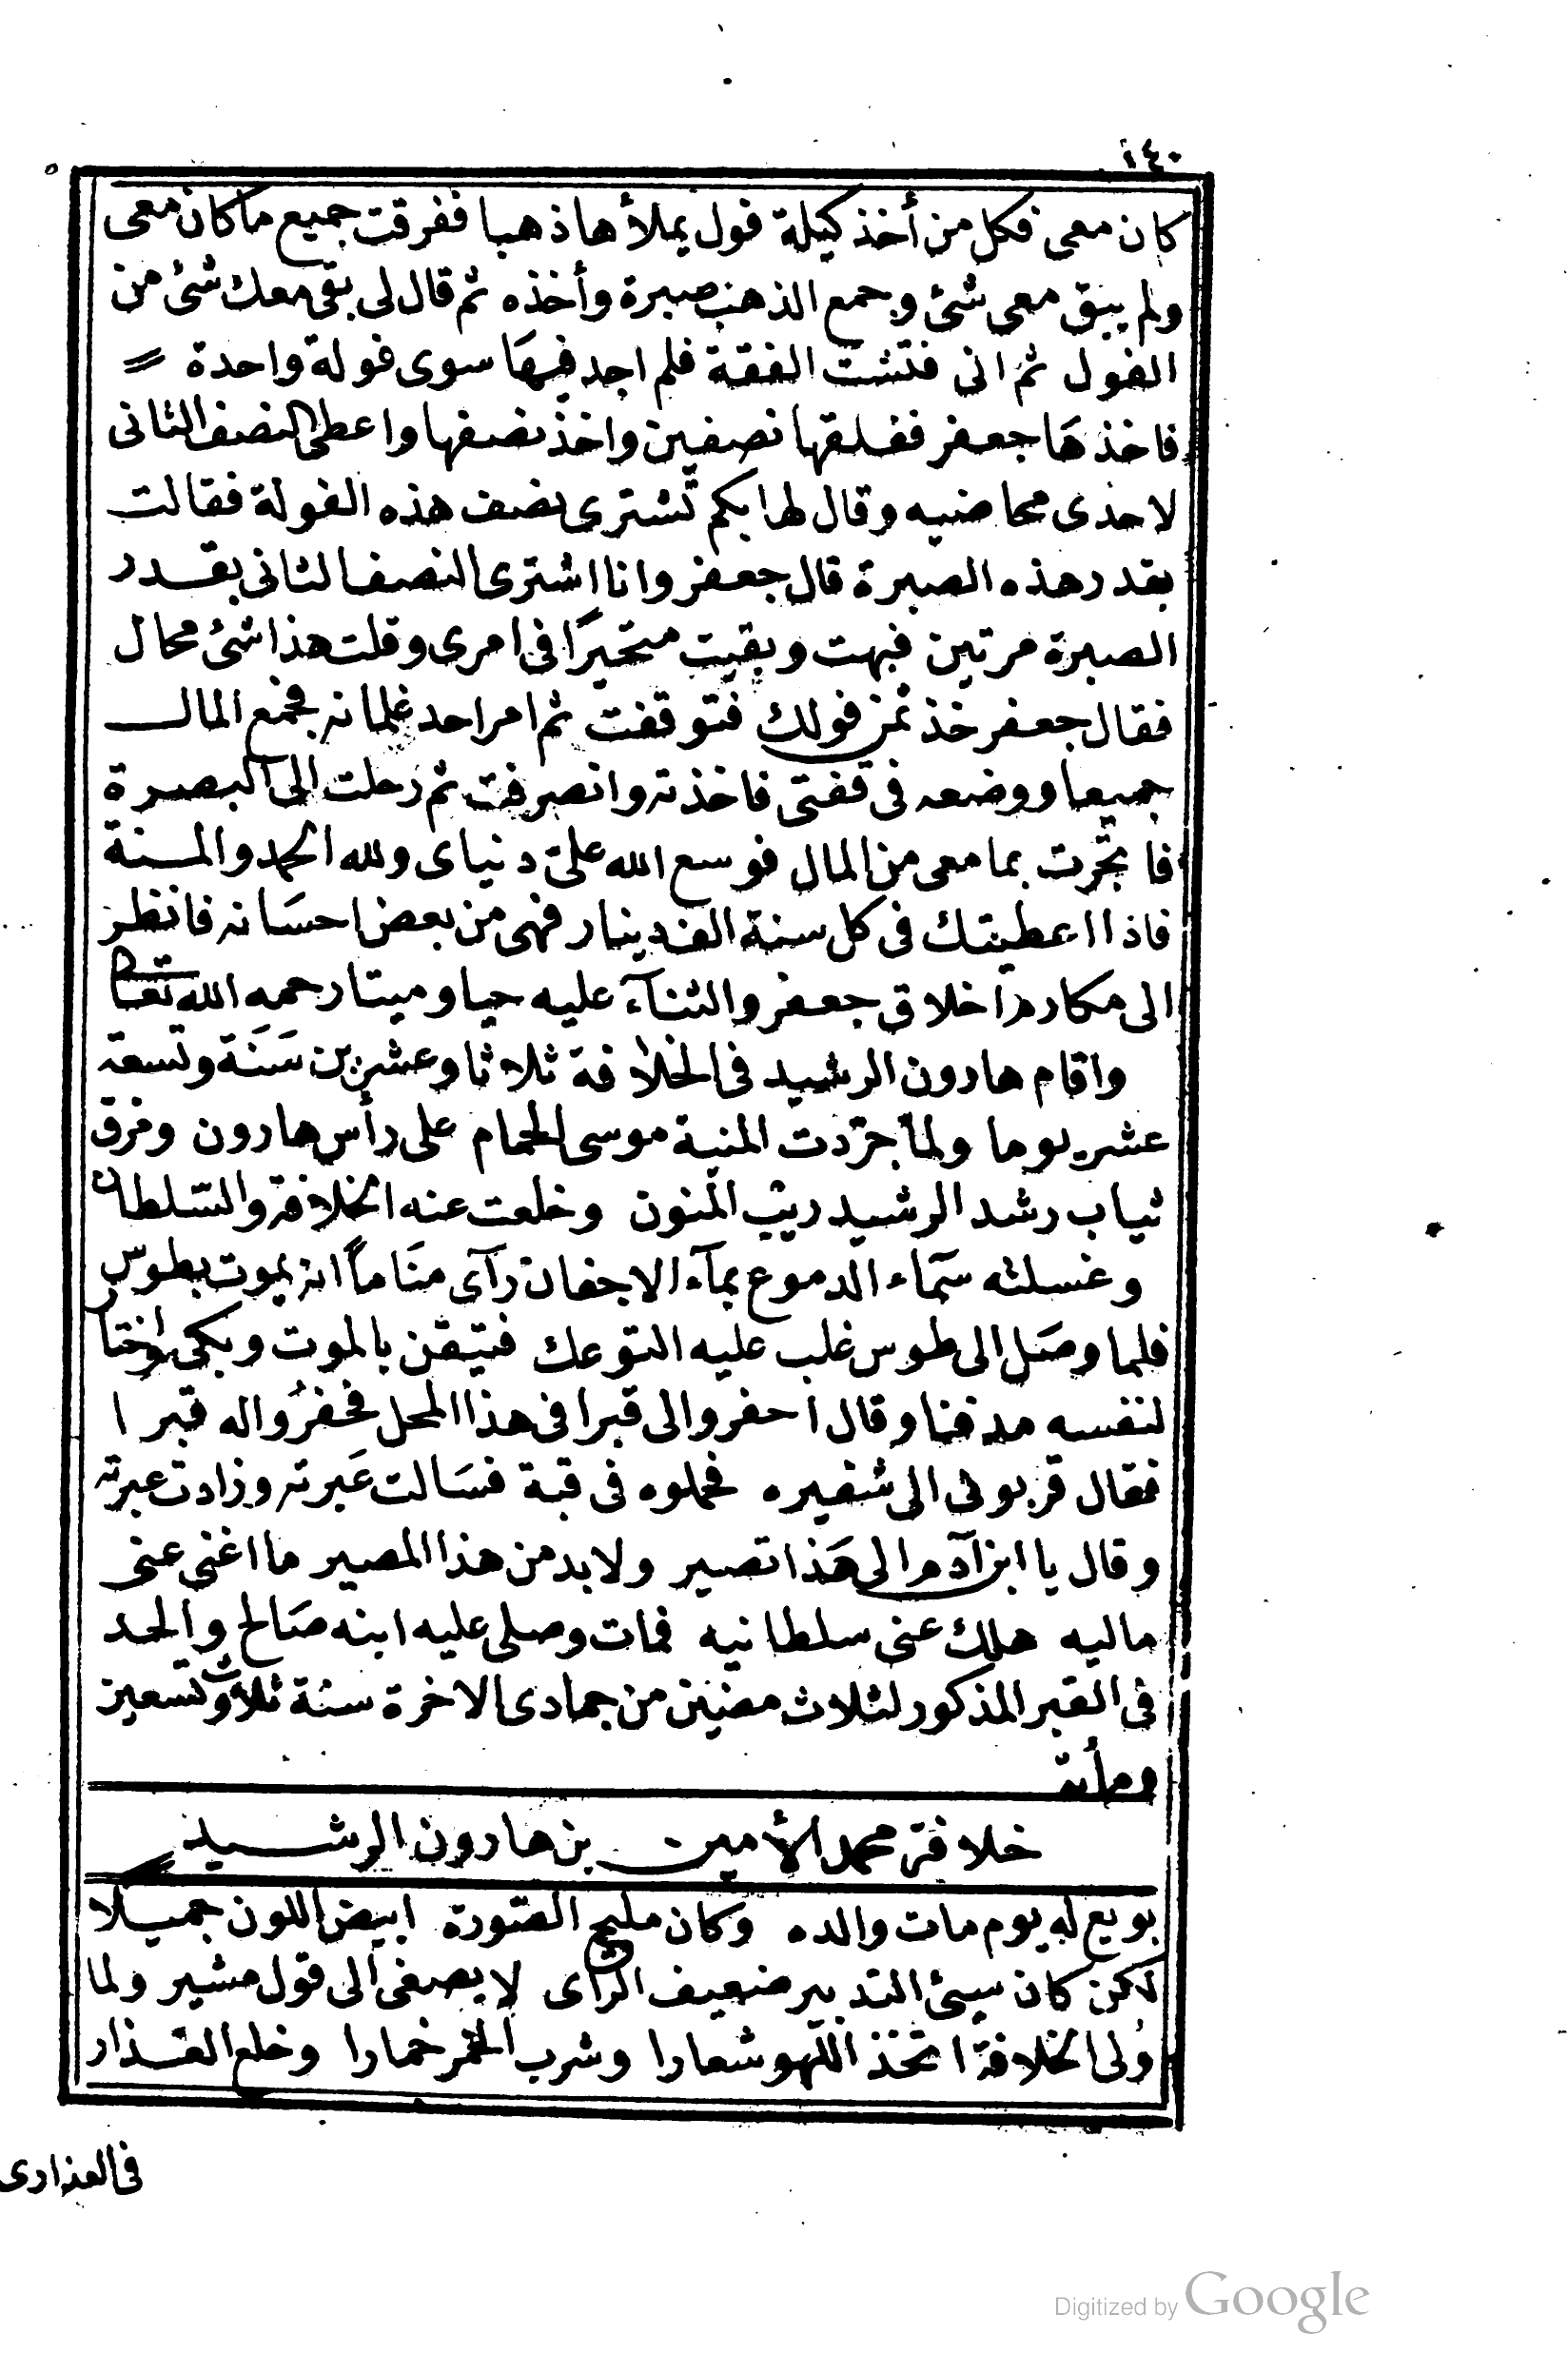 ١٤٠
كان معى فكل من أخذ كيلة فول يملأها ذهبا ففرقت جميع ما كان معى
ولم يبق معى شئ وجمع الذهب صبرة وأخذه ثم قال لى بقى معك شئ من
الفول ثم انى فتشت القفة فلم اجد فيها سوى فولة واحدة
فاخذها جعفر ففلقها نصفين واخذ نصفها واعطى النصف الثانى
لاحدى محاضيه وقال لها بكم تشترى نصف هذه الفولة فقالت
بقدر هذه الصبرة قال جعفر وانا اشترى النصف الثانى بقدر
الصبرة مرتين فبهت وبقيت متحيرًا فى امرى وقلت هذا شئ محال
فقال جعفر خذ ثمن فولك فتوقفت ثم امر احد غلمانه فجمع المال
جميعا ووضعه فى قفتى فاخذته وانصرفت ثم رحلت الى البصرة
فاتجرت بما معى من المال فوسع الله علىّ دنياى ولله الحمد والمنة
فاذا اعطيتك فى كل سنة الف دينار فهى من بعض احسانه فانظر
الى مكارم اخلاق جعفر والثنآء عليه حيا وميتا رحمه الله تعا
واقام هارون الرشيد فى الخلافة ثلاثا وعشرين سَنَة وتسعة
عشر يوما ولما جرّدت المنية موسى الحمام على رأس هارون ومزق
ثياب رشد الرشيد ريب المنون وخلعت عنه الخلافة والسّلطان
وغسلته سَماء الدموع بمآء الاجفان رآى منَاماً انه يموت بطوس
فلما وصَل الى طوس غلب عليه التوعك فتيقن بالموت وبكى واختار
لنفسه مدفنا وقال احفروا لى قبرا فى هذا المحل فحفرُوا له قبرا
فقال قربونى الى شفيره فحملوه فى قبة فسَالت عَبرته وزادت عبرته
وقال يا ابن آدم الى هَذا تصير ولا بد من هذا المصير ما اغنى عنى
ماليه هلك عنى سلطانيه فمات وصلى عليه ابنه صَالح والحد
فى القبر المذكور لثلاث مضين من جمادى الاخرة سنة ثلاث وتسعين
ومأية
خلافة محمد الأمين بن هارون الرشيد
بويع له يوم مات والده وكان مليح الصّورة ابيض اللون جميلا
لكن كان سيئ التدبير ضعيف الرأى لا يصغى الى قول مشير ولما
ولى الخلافة اتخذ اللّهو شعارا وشرب الخمر خمارا وخلع العذار
فى العذارى
Digitized by Google